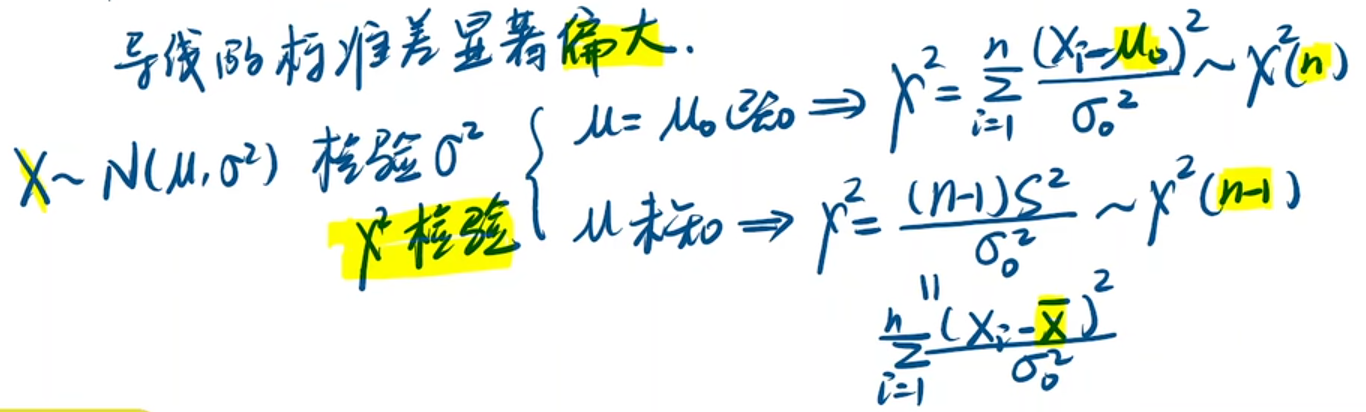 导线的标准差显著偏大.
X~N(μ,σ²) 检验σ²
χ²检验
μ=μ₀已知 ⇒ χ² = Σ_{i=1}^{n} (Xᵢ-μ₀)²/σ₀² ~ χ²(n)
μ未知 ⇒ χ² = (n-1)S²/σ₀² ~ χ²(n-1)
=
Σ_{i=1}^{n} (Xᵢ-X̄)²/σ₀²